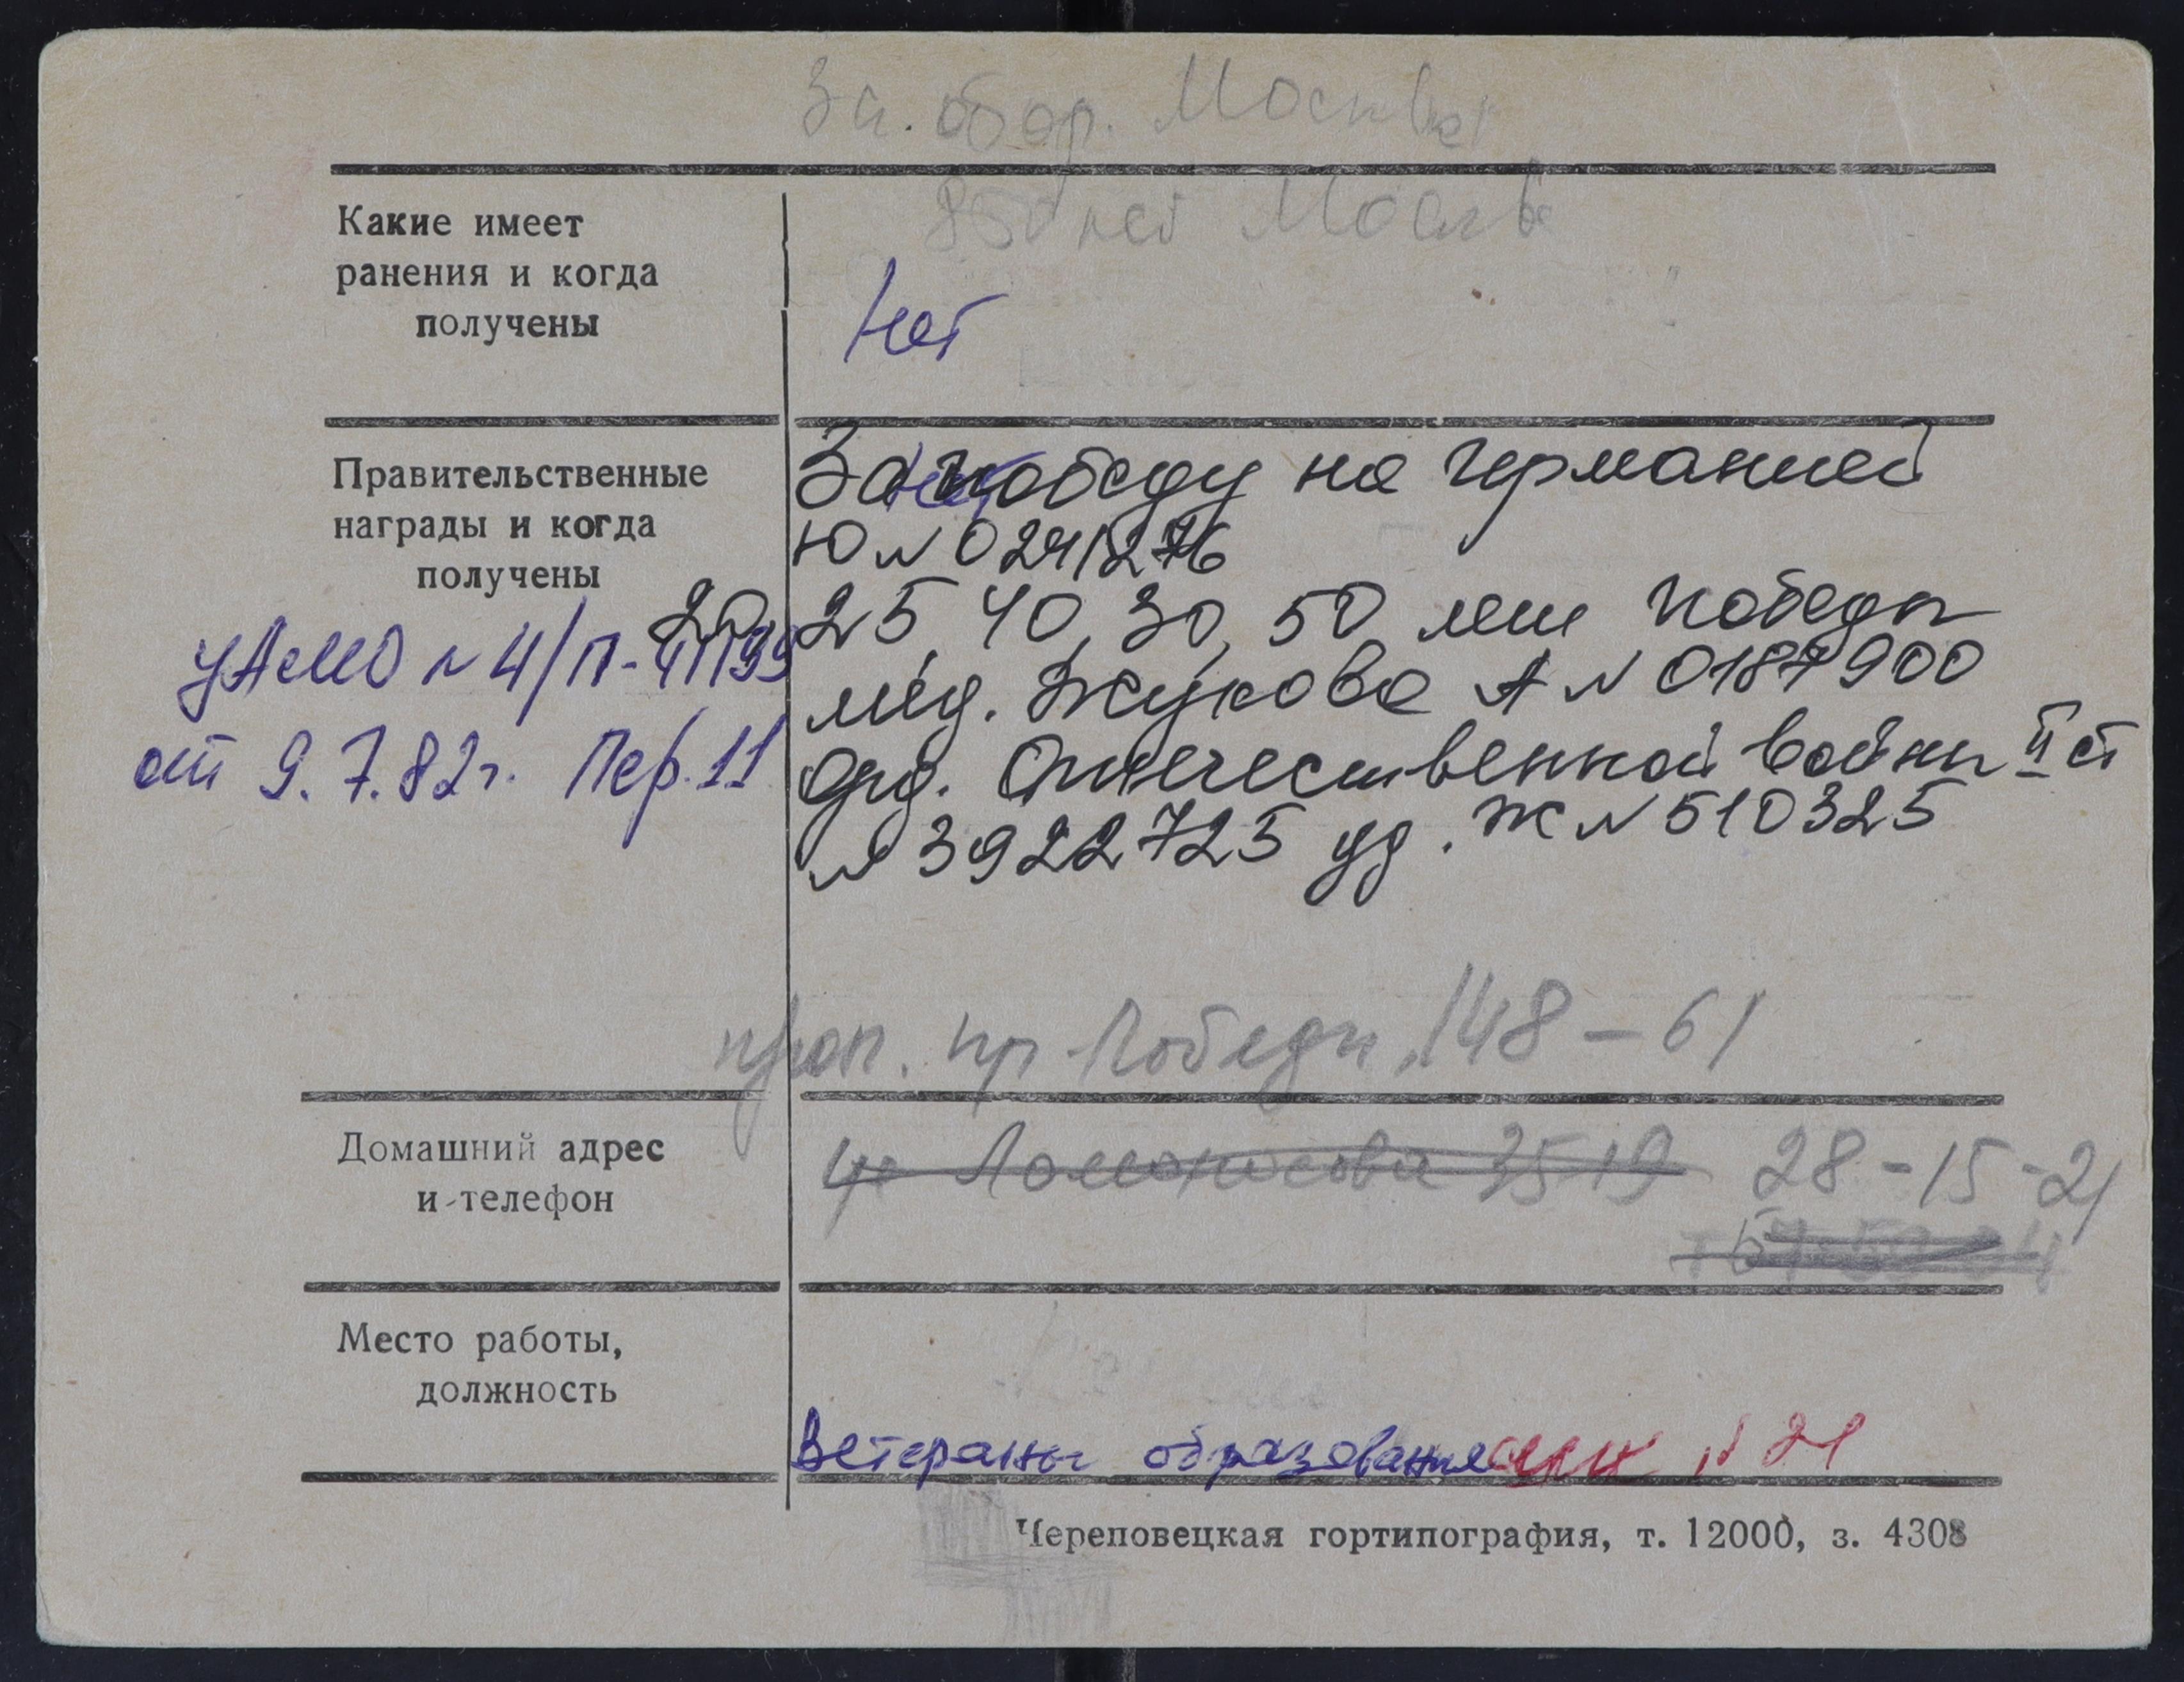 За. обор. Москвы
850 лет Москв
Какие имеет
ранения и когда
получены
Нет
Правительственные
награды и когда
получены
За победу на Германией
Ю № 0241276
20, 25, 40, 30, 50 лет Победы
мед. Жукова А № 0187900
орд. Отечественной войны II ст
№ 3922725 уд. Ж № 510325
ЦАМО № 4/П-41139
от 9.7.82г. Пер. 11
проп. пр Победы, 148-61
Домашний адрес
и телефон
Ломоносова 35 19 28-15-21
Место работы,
должность
Ветераны образования № 21
Череповецкая гортипография, т. 12000, з. 4308